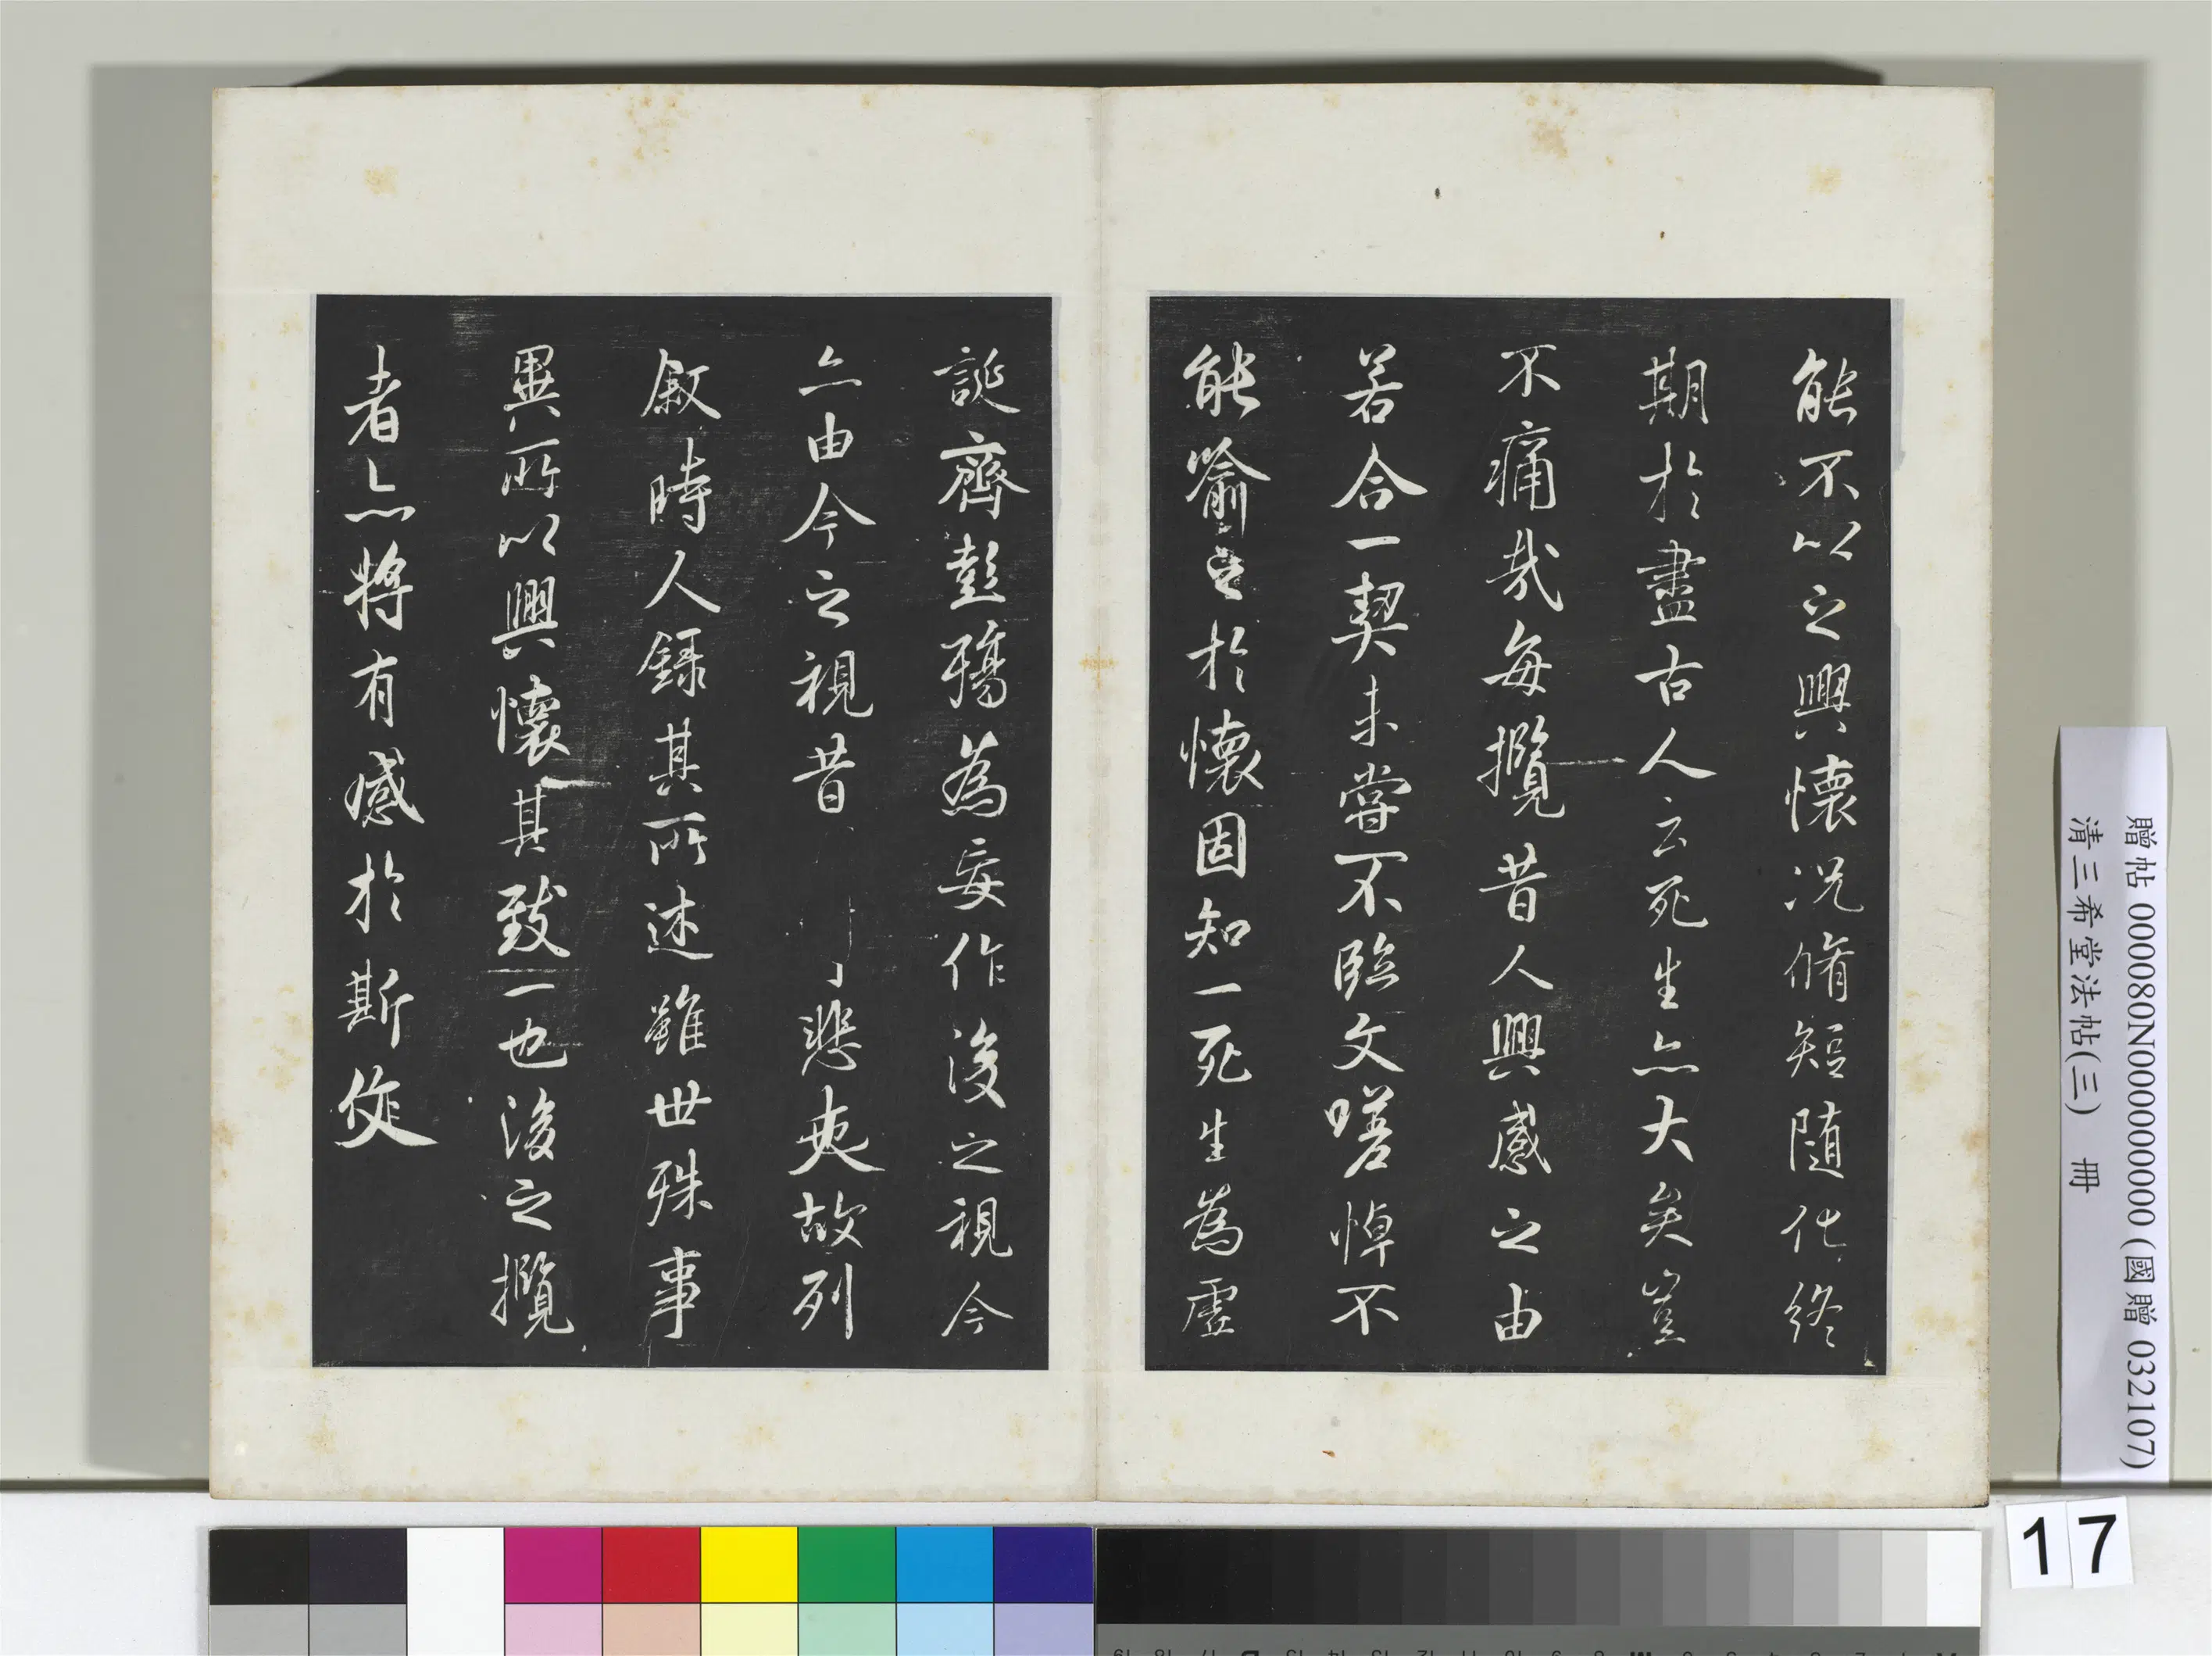 能不以之興懷況脩短隨化終
期於盡古人云死生亦大矣豈
不痛哉每攬昔人興感之由
若合一契未嘗不臨文嗟悼不
能喻之於懷固知一死生為虛
誕齊彭殤為妄作後之視今
亦由今之視昔 悲夫故列
敘時人錄其所述雖世殊事
異所以興懷其致一也後之攬
者亦將有感於斯文
贈帖 000080N000000000 (國贈 032107)
清三希堂法帖(三) 冊
17